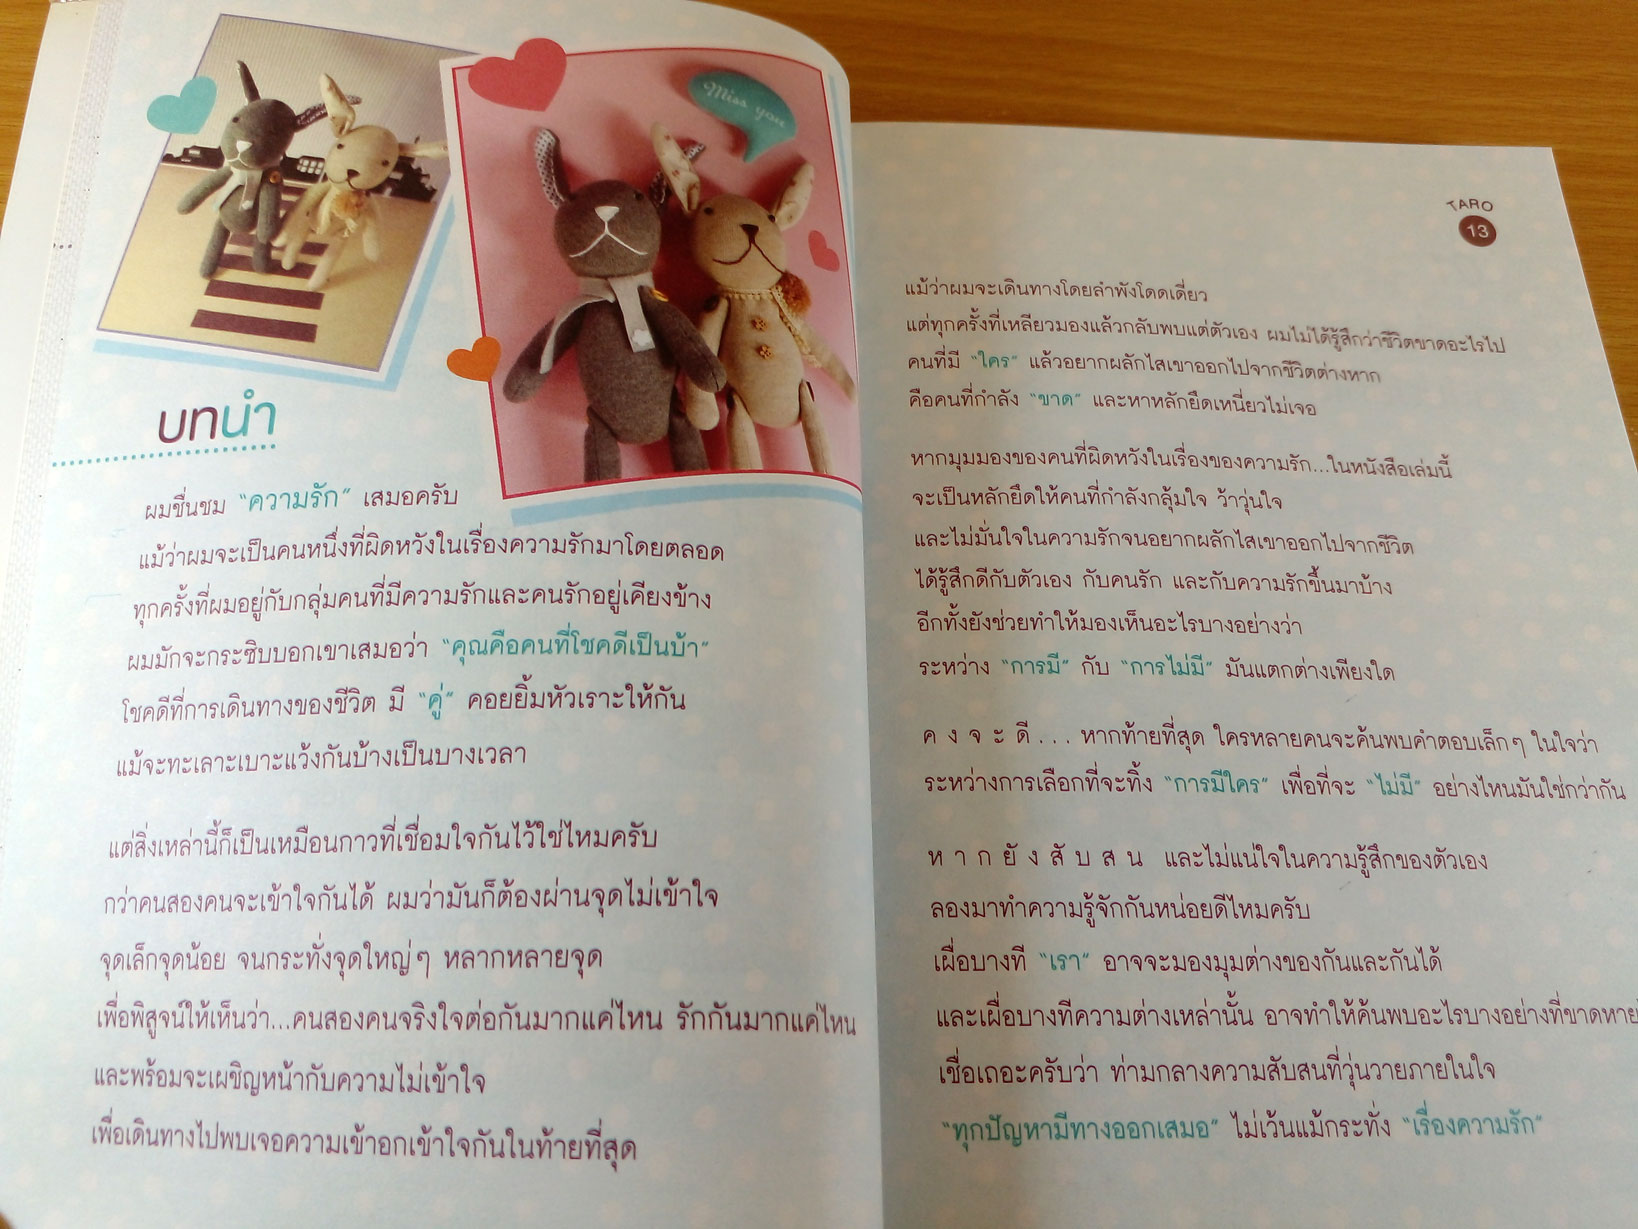 Miss you
บทนำ
ผมชื่นชม "ความรัก" เสมอครับ
แม้ว่าผมจะเป็นคนหนึ่งที่ผิดหวังในเรื่องความรักมาโดยตลอด
ทุกครั้งที่ผมอยู่กับกลุ่มคนที่มีความรักและคนรักอยู่เคียงข้าง
ผมมักจะกระซิบบอกเขาเสมอว่า "คุณคือคนที่โชคดีเป็นบ้า"
โชคดีที่การเดินทางของชีวิต มี "คู่" คอยยิ้มหัวเราะให้กัน
แม้จะทะเลาะเบาะแว้งกันบ้างเป็นบางเวลา
แต่สิ่งเหล่านี้ก็เป็นเหมือนกาวที่เชื่อมใจกันไว้ใช่ไหมครับ
กว่าคนสองคนจะเข้าใจกันได้ ผมว่ามันก็ต้องผ่านจุดไม่เข้าใจ
จุดเล็กจุดน้อย จนกระทั่งจุดใหญ่ๆ หลากหลายจุด
เพื่อพิสูจน์ให้เห็นว่า...คนสองคนจริงใจต่อกันมากแค่ไหน รักกันมากแค่ไหน
และพร้อมจะเผชิญหน้ากับความไม่เข้าใจ
เพื่อเดินทางไปพบเจอความเข้าอกเข้าใจกันในท้ายที่สุด
TARO
13
แม้ว่าผมจะเดินทางโดยลำพังโดดเดี่ยว
แต่ทุกครั้งที่เหลียวมองแล้วกลับพบแต่ตัวเอง ผมไม่ได้รู้สึกว่าชีวิตขาดอะไรไป
คนที่มี "ใคร" แล้วอยากผลักไสเขาออกไปจากชีวิตต่างหาก
คือคนที่กำลัง "ขาด" และหาหลักยึดเหนี่ยวไม่เจอ
หากมุมมองของคนที่ผิดหวังในเรื่องของความรัก...ในหนังสือเล่มนี้
จะเป็นหลักยึดให้คนที่กำลังกลุ้มใจ ว้าวุ่นใจ
และไม่มั่นใจในความรักจนอยากผลักไสเขาออกไปจากชีวิต
ได้รู้สึกดีกับตัวเอง กับคนรัก และกับความรักขึ้นมาบ้าง
อีกทั้งยังช่วยทำให้มองเห็นอะไรบางอย่างว่า
ระหว่าง "การมี" กับ "การไม่มี" มันแตกต่างเพียงใด
ค ง จ ะ ดี . . . หากท้ายที่สุด ใครหลายคนจะค้นพบคำตอบเล็กๆ ในใจว่า
ระหว่างการเลือกที่จะทิ้ง "การมีใคร" เพื่อที่จะ "ไม่มี" อย่างไหนมันใช่กว่ากัน
ห า ก ยั ง สั บ ส น และไม่แน่ใจในความรู้สึกของตัวเอง
ลองมาทำความรู้จักกันหน่อยดีไหมครับ
เผื่อบางที "เรา" อาจจะมองมุมต่างของกันและกันได้
และเผื่อบางทีความต่างเหล่านั้น อาจทำให้ค้นพบอะไรบางอย่างที่ขาดหาย
เชื่อเถอะครับว่า ท่ามกลางความสับสนที่วุ่นวายภายในใจ
"ทุกปัญหามีทางออกเสมอ" ไม่เว้นแม้กระทั่ง "เรื่องความรัก"